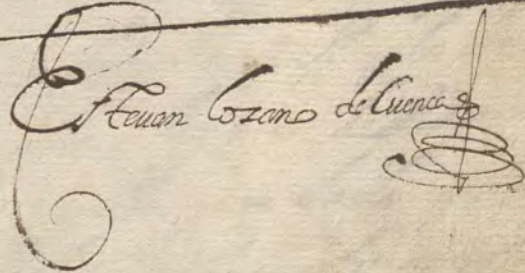 Esteuan Lozano de Cuenca